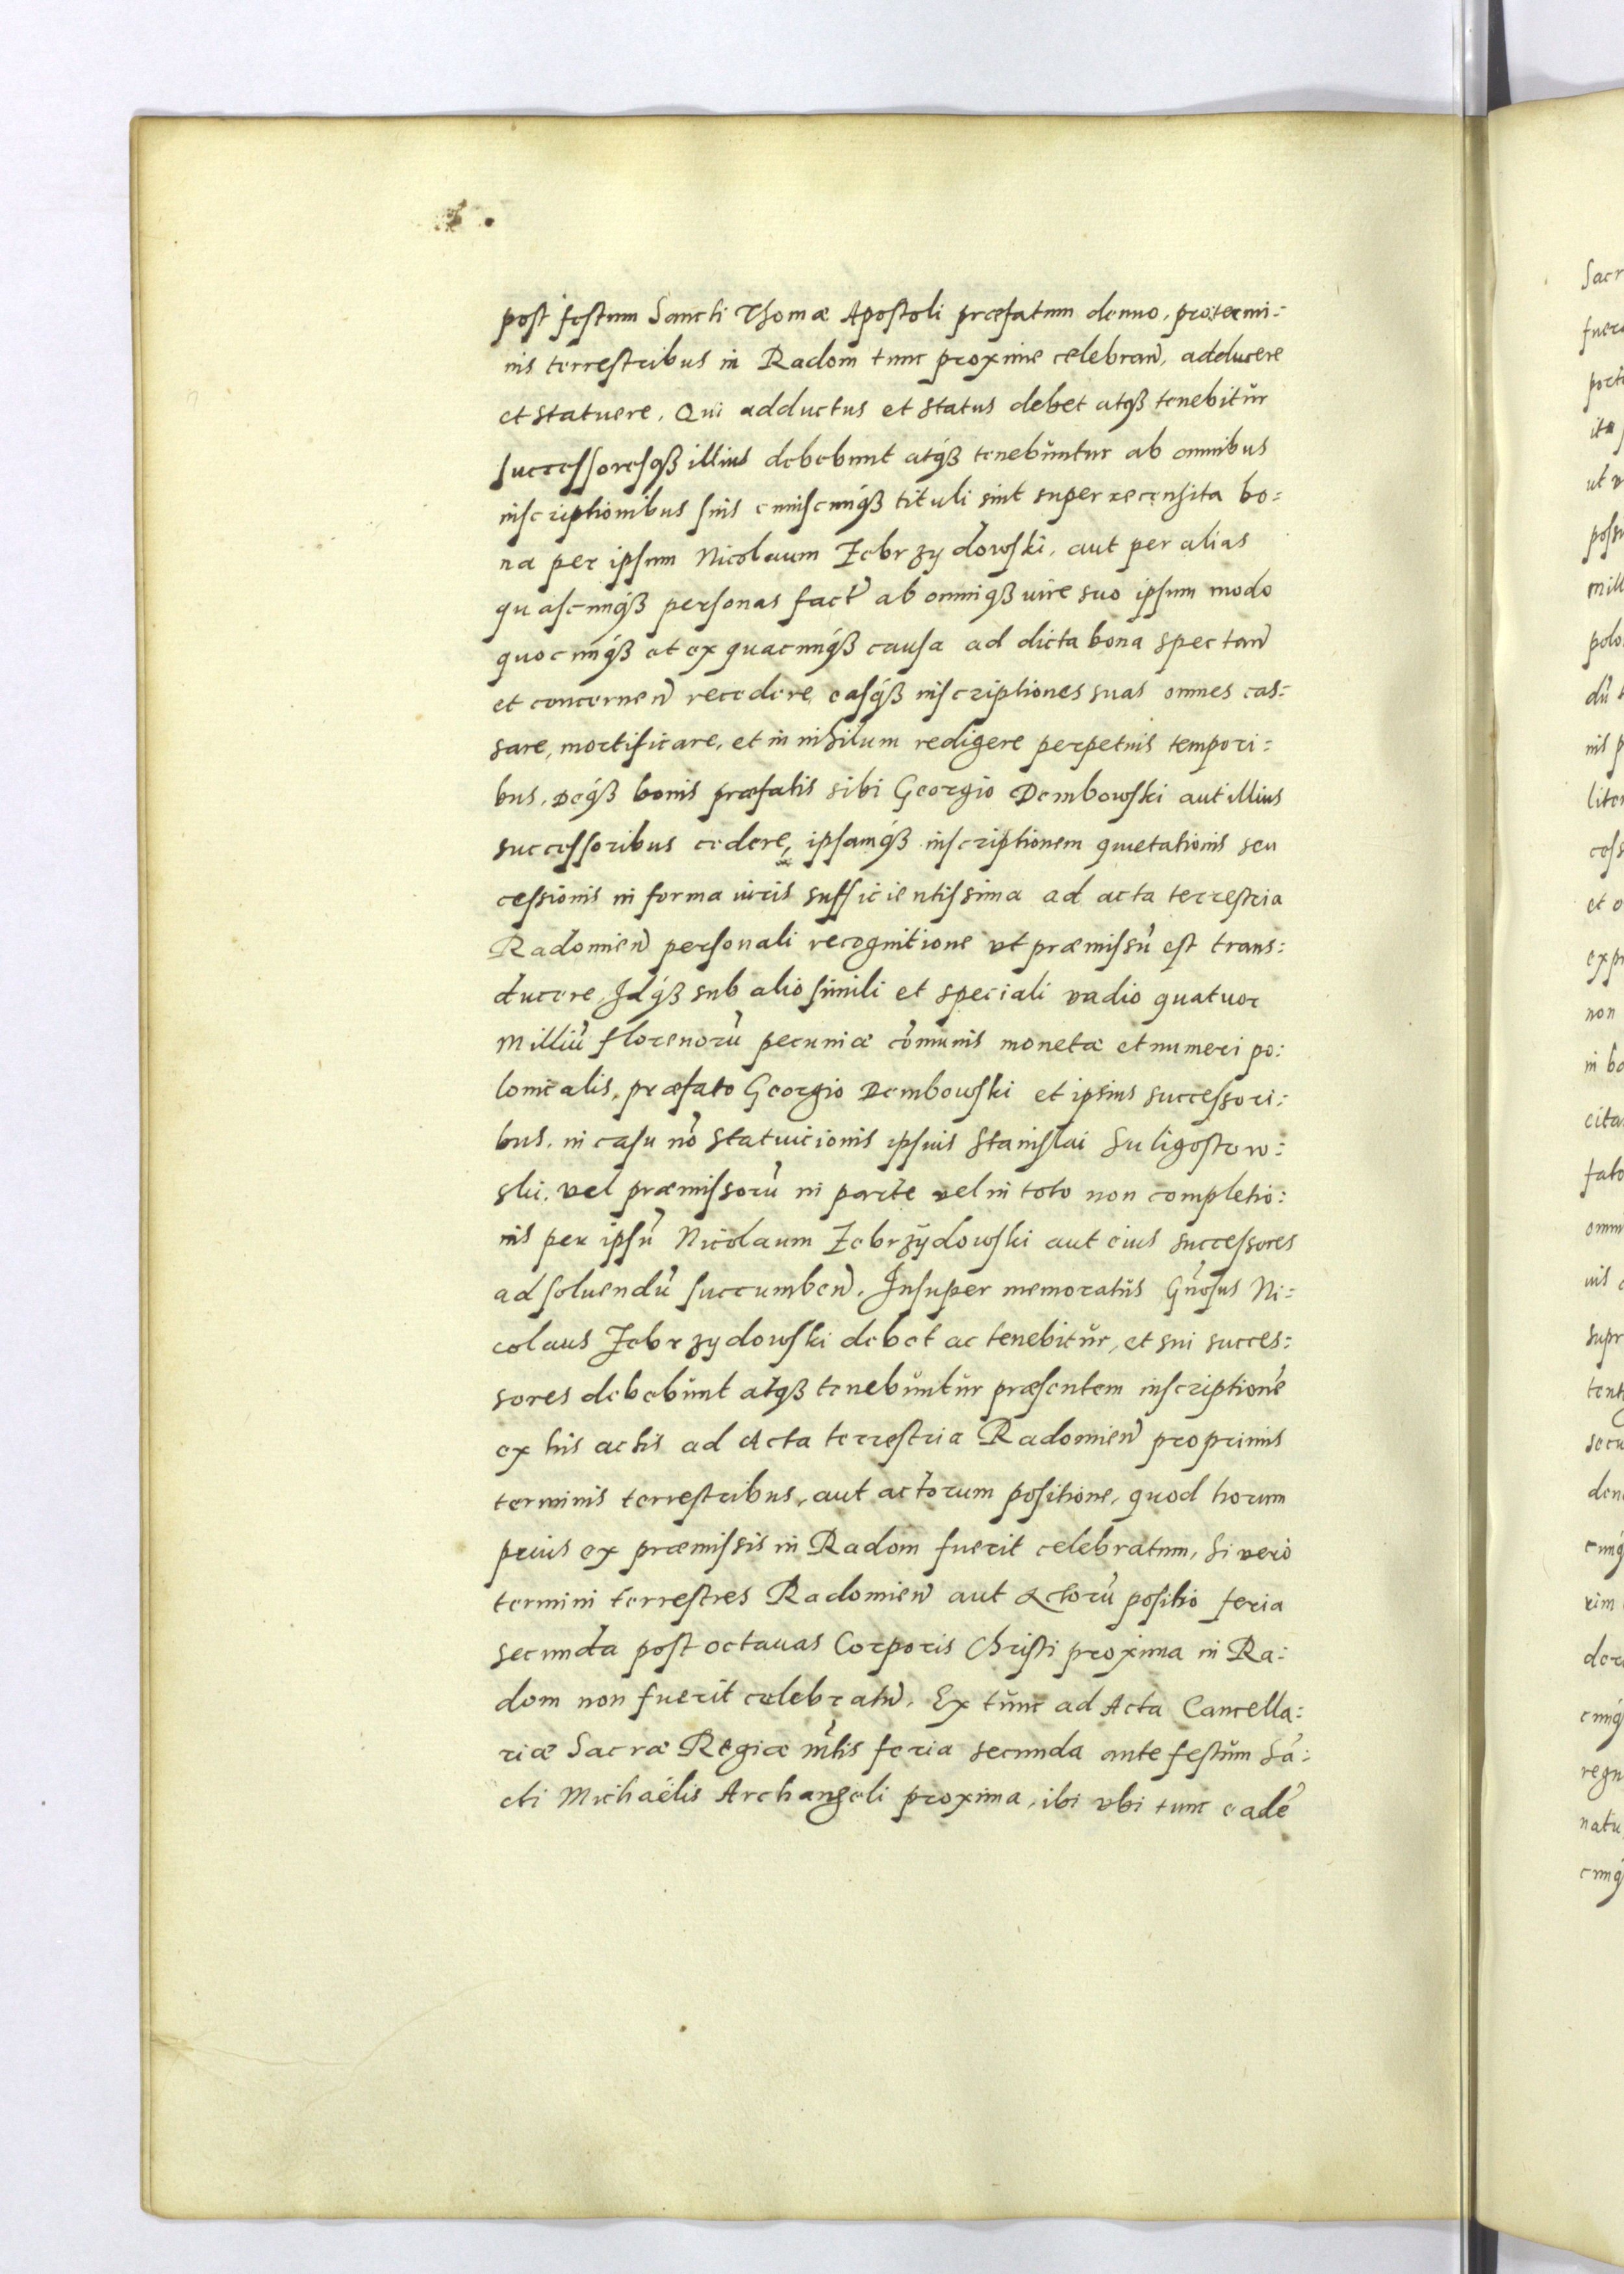 post festum Sancti Thomæ Apostoli præfatum denuo, pro termi:
nis terrestribus in Radom tunc proxime celebrañ, adducere
et statuere. Qui adductus et status debet atqꝫ tenebitur
successoresqꝫ illius debebunt atqꝫ tenebuntur ab omnibus
inscriptionibus suis cuiuscunqꝫ tituli sint super recensita bo:
na per ipsum Nicolaum Zebrzydowski, aut per alias
quascunqꝫ personas fact̃ ab omniqꝫ iure suo ipsum modo
quocunqꝫ et ex quacunqꝫ causa ad dicta bona spectañ
et concerneñ recedere, easqꝫ inscriptiones suas omnes cas:
sare, mortificare, et in nihilum redigere perpetuis tempori:
bus, Deqꝫ bonis præfatis sibi Georgio Dembowski aut illius
successoribus cedere, ipsamqꝫ inscriptionem quietationis seu
cessionis in forma iuris sufficientissima ad acta terrestria
Radomieñ personali recognitione vt præmissũ est trans:
ducere, Idqꝫ sub alio simili et speciali vadio quatuor
milliũ florenorũ pecuniæ cõmunis monetæ et numeri po:
lonicalis, præfato Georgio Dembowski et ipsius successori:
bus, in casu nõ statuicionis ipsius Stanislai Suligostow:
ski, vel præmissorũ in parte vel in toto non completio:
nis per ipsũ Nicolaum Zebrzydowski aut eius successores
ad soluendũ succumbeñ. Insuper memoratus Gñosus Ni:
colaus Zebrzydowski debet ac tenebitur, et sui succes:
sores debebunt atqꝫ tenebuntur præsentem inscriptionẽ
ex his actis ad Acta terrestria Radomieñ pro primis
terminis terrestribus, aut actorum positione, quod horum
prius ex præmissis in Radom fuerit celebratum, Si vero
termini terrestres Radomieñ aut Actorũ positio feria
secunda post octauas Corporis Christi proxima in Ra:
dom non fuerit celebratũ, Ex tunc ad Acta Cancella:
riæ Sacræ Regiæ Mtis̃ feria secunda ante festum Sã:
cti Michaëlis Archangeli proxima, ibi vbi tunc eadẽ